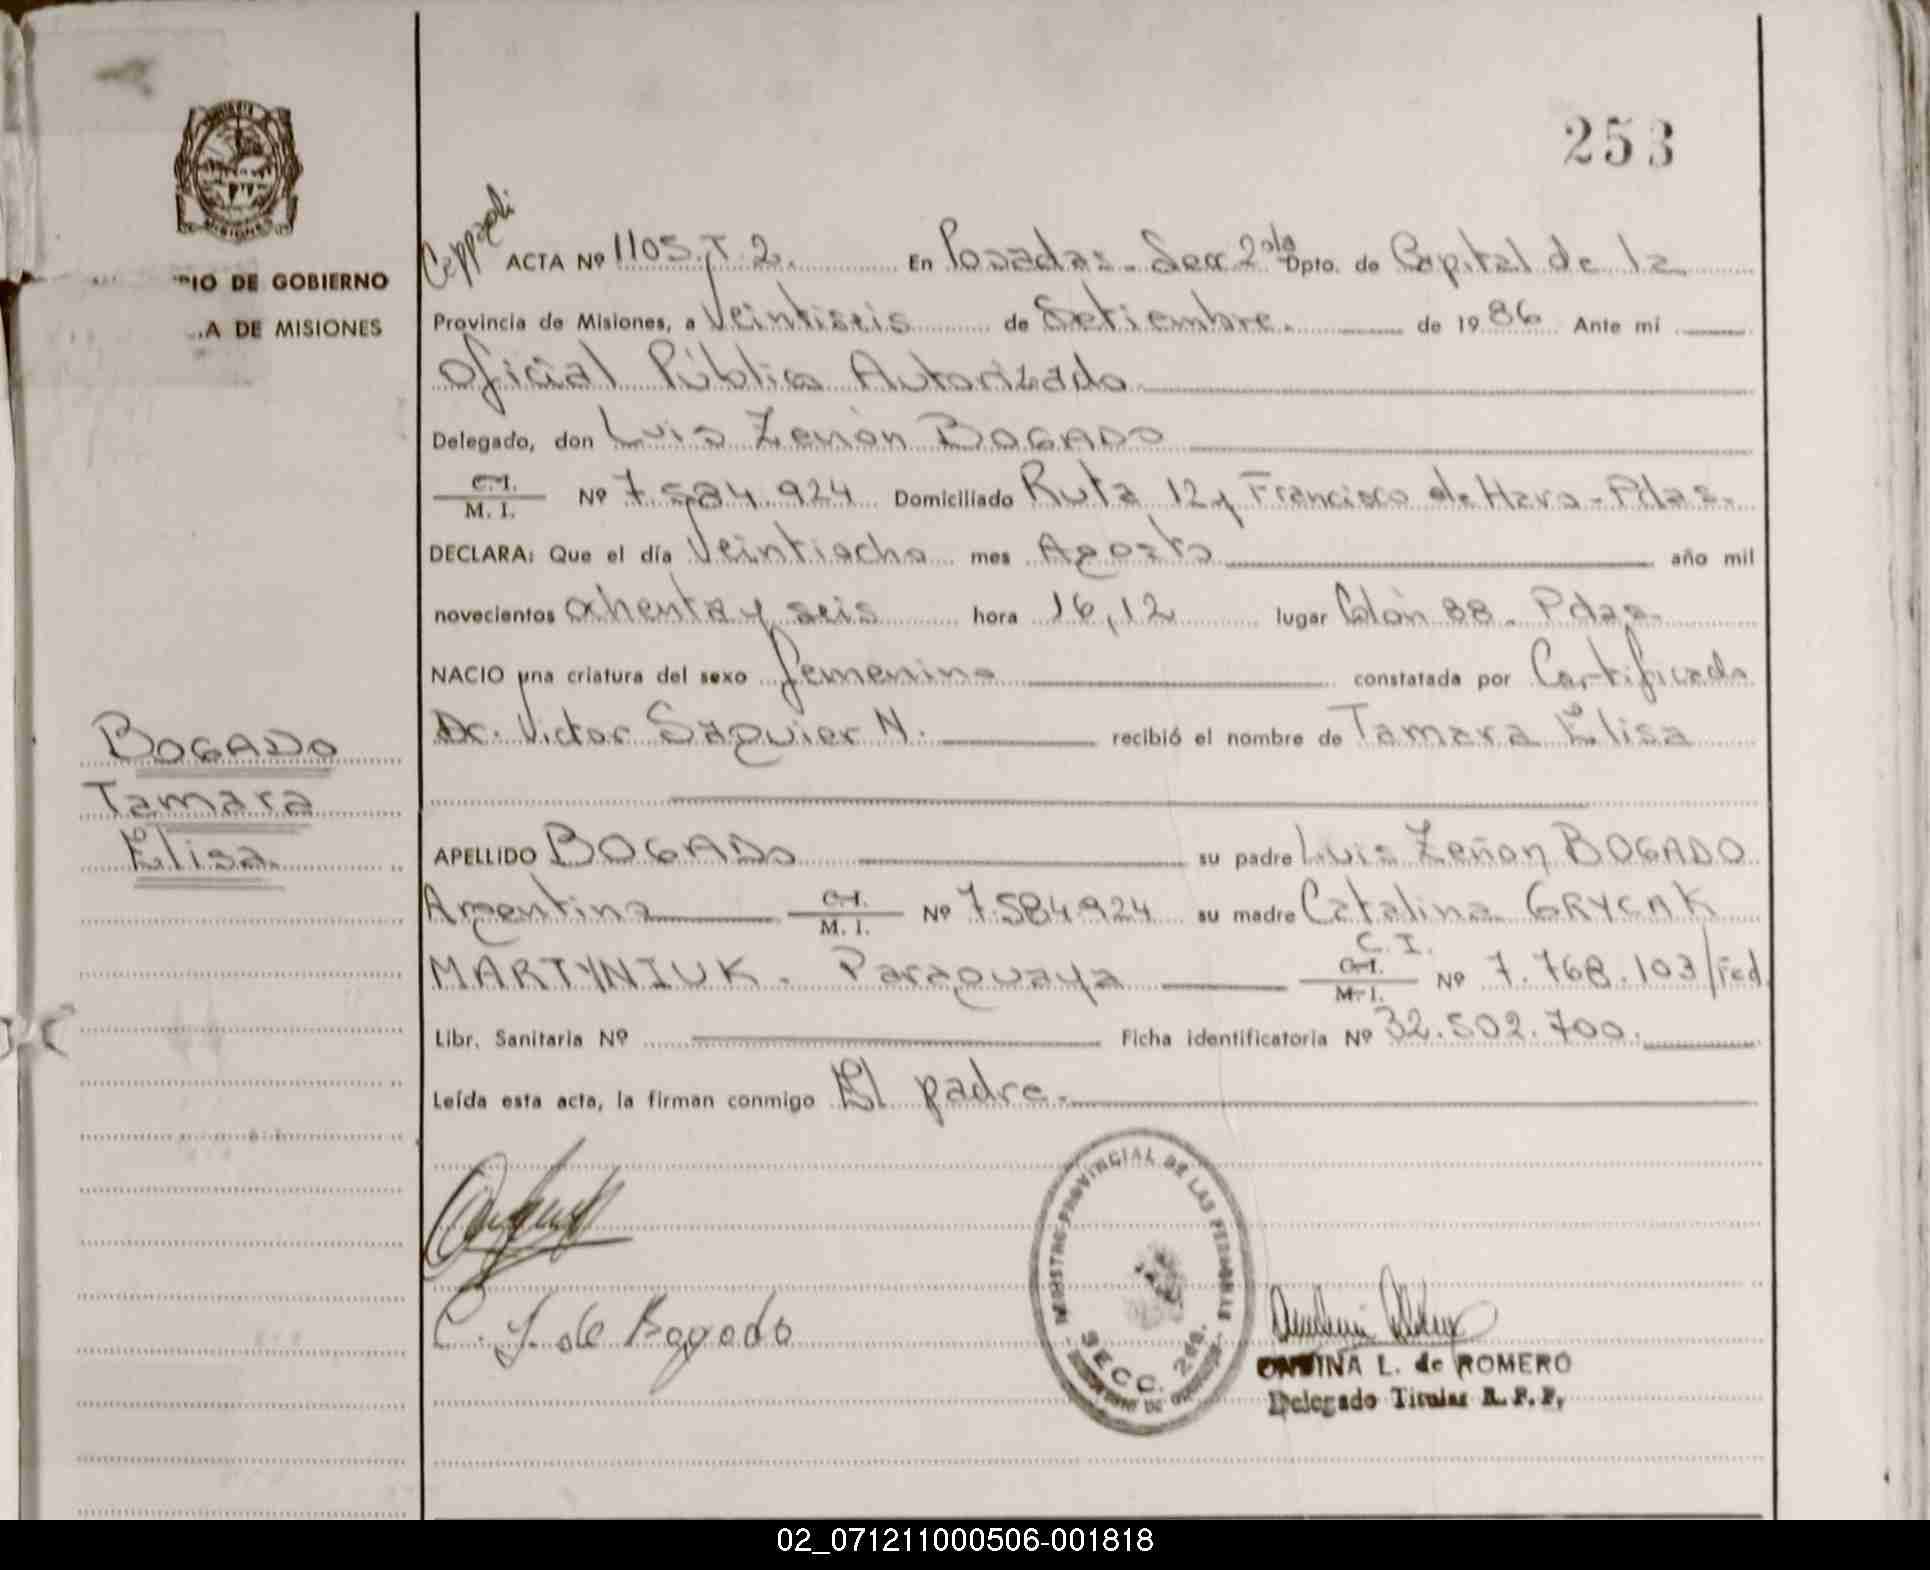 253
ACTA Nº 1105. T. 2. En Posadas. Secc 2da Dpto. de Capital de la
..IO DE GOBIERNO
..A DE MISIONES
Provincia de Misiones, a Veintiseis de Setiembre. de 1986 Ante mí
Oficial Público Autorizado
Delegado, don Luis Zenón BOGADO
C.I.
M. I. Nº 7.584.924 Domiciliado Ruta 12 y Francisco de Haro - Pdas.
DECLARA: Que el día Veintiocho mes Agosto año mil
novecientos ochenta y seis hora 16,12 lugar Colón 88. Pdas.
NACIO una criatura del sexo femenino constatada por Certificado
Dr. Victor Saguier N. recibió el nombre de Tamara Elisa
BOGADO
Tamara
Elisa
APELLIDO BOGADO su padre Luis Zenón BOGADO
Argentino C.I.
M. I. Nº 7.584.924 su madre Catalina GRYCAK
MARTYNIUK - Paraguaya C. I.
C.I.
M. I. Nº 7.768.103/Fed.
Libr. Sanitaria Nº Ficha identificatoria Nº 32.502.700.
Leída esta acta, la firman conmigo El padre.
C. G. de Bogado
REGISTRO PROVINCIAL DE LAS PERSONAS
SECC. 2da.
L. de ROMERO
Delegado Titular R. P. P.
02_071211000506-001818